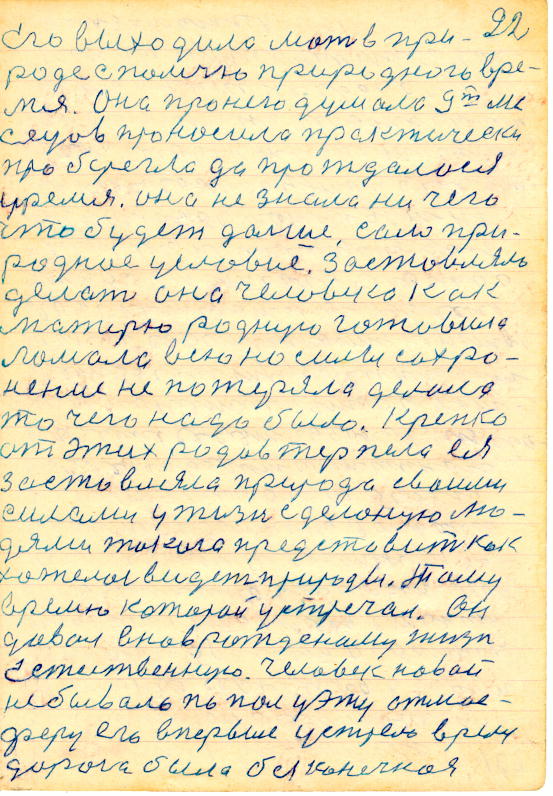 22
его выходила мат в при-
роде с помичю природного вре-
мя. Она про него думала 9ть ме
сяцов проносила практически
про берегла да прождалося
время. она не знала ни чего
что будет далше, само при-
родное условие. Заставляль
делат она человека как
матерю родную готовила
ломала всю но силы сохро-
нение не потеряла делала
то чего надо было. Крепко
от этих родов терпела ея
заставляла природа своими
силами у жизн сделоную лю-
дями такога представит как
хотелос видет природы. Тому
время которай устречал. Он
давал внов рожденаму жизн
естественную. Человек новай
небываль попол у эту атмос-
феру его впервые устрель время
дорога была бесконечная